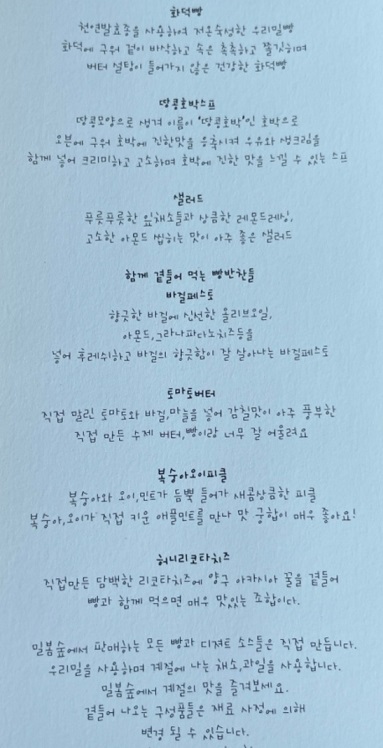 화덕빵
천연발효종을 사용하여 저온숙성한 우리밀빵
화덕에 구워 겉이 바삭하고 속은 촉촉하고 쫄깃하며
버터 설탕이 들어가지 않은 건강한 화덕빵
땅콩호박스프
땅콩모양으로 생겨 이름이 '땅콩호박'인 호박으로
오븐에 구워 호박에 진한맛을 응축시켜 우유와 생크림을
함께 넣어 크리미하고 고소하며 호박에 진한 맛을 느낄 수 있는 스프
샐러드
푸릇푸릇한 잎채소들과 상큼한 레몬드레싱,
고소한 아몬드 씹히는 맛이 아주 좋은 샐러드
함께 곁들어 먹는 빵반찬들
바질페스토
향긋한 바질에 신선한 올리브오일,
아몬드,그라나파다노치즈등을
넣어 후레쉬하고 바질의 향긋함이 잘 살아나는 바질페스토
토마토버터
직접 말린 토마토와 바질,마늘을 넣어 감칠맛이 아주 풍부한
직접 만든 수제 버터,빵이랑 너무 잘 어울려요
복숭아오이피클
복숭아와 오이,민트가 듬뿍 들어가 새콤상큼한 피클
복숭아,오이가 직접 키운 애플민트를 만나 맛 궁합이 매우 좋아요!
허니리코타치즈
직접만든 담백한 리코타치즈에 양구 아카시아 꿀을 곁들어
빵과 함께 먹으면 매우 맛있는 조합이다.
밀봄숲에서 판매하는 모든 빵과 디저트 소스들은 직접 만듭니다.
우리밀을 사용하며 계절에 나는 채소,과일을 사용합니다.
밀봄숲에서 계절의 맛을 즐겨보세요.
곁들어 나오는 구성품들은 재료 사정에 의해
변경 될 수 있습니다.